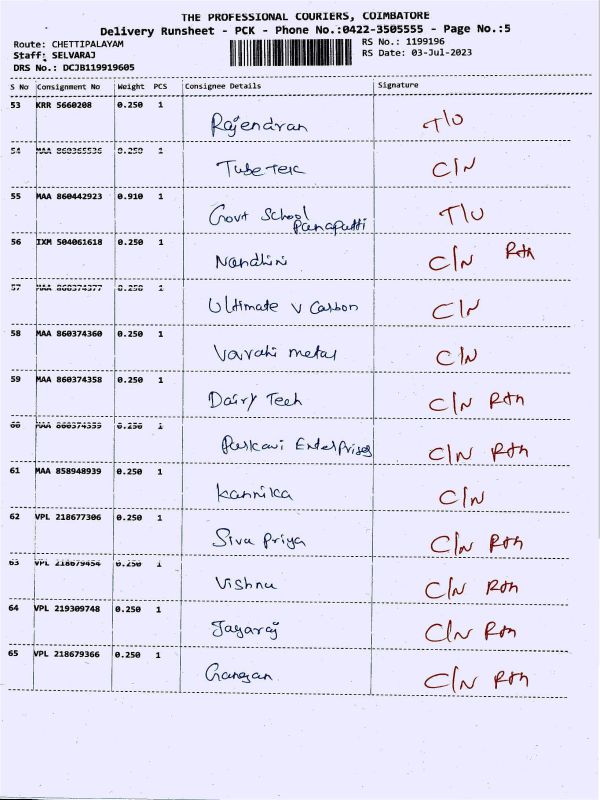 THE PROFESSIONAL COURIERS, COIMBATORE
Delivery Runsheet - PCK - Phone No.:0422-3505555 - Page No.:5
Route: CHETTIPALAYAM RS No.: 1199196
Staff: SELVARAJ RS Date: 03-Jul-2023
DRS No.: DCJB119919605
S No Consignment No Weight PCS Consignee Details Signature
53 KRR 5660208 0.250 1
Rajendran T/U
54 MAA 860365536 0.250 1
Tube Tek C/N
55 MAA 860442923 0.910 1
Govt School T/U
Panapatti
56 IXM 504061618 0.250 1
Nandhini C/N Rtn
57 MAA 860374377 0.250 1
Ultimate V Carbon C/N
58 MAA 860374360 0.250 1
Varahi metal C/N
59 MAA 860374358 0.250 1
Dairy Tech C/N Rtn
60 MAA 860374359 0.250 1
Enterprises C/N Rtn
61 MAA 858948939 0.250 1
Kannika C/N
62 VPL 218677306 0.250 1
Siva Priya C/N Rtn
63 VPL 218679454 0.250 1
Vishnu C/N Rtn
64 VPL 219309748 0.250 1
Jayaraj C/N Rtn
65 VPL 218679366 0.250 1
Ganesan C/N Rtn